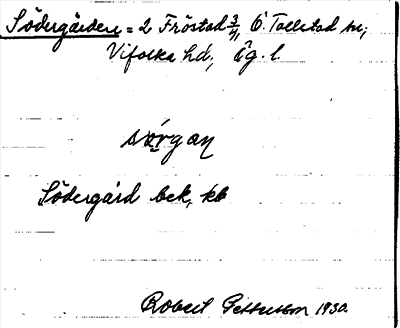 Södergården = 2 Fröstad 3/4 Ö. Tollstad sn;
Vifolka hd; Ög. l.
sörgan
Södergård bek, kb
Robert Pettersson 1930.